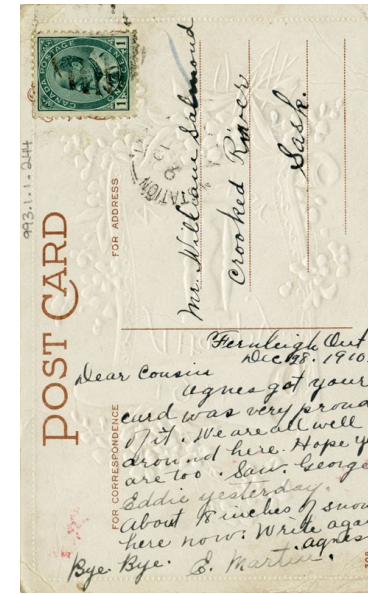 CANADA POSTAGE
1 1
993.1.1-244
POST CARD
FOR ADDRESS
Mr. William Salmond
Crooked River
Sask.
STATION
FOR CORRESPONDENCE
Fernleigh Ont
Dec 28. 1910.
Dear Cousin
Agnes got your
card was very proud
of it. We are all well
around here. Hope y
are too. Saw. George
Eddie yesterday.
About 8 inches of snow
here now. Write aga
Bye Bye. E. Martin. Agnes